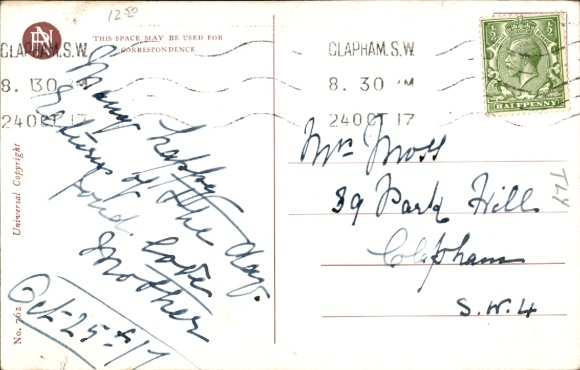 12 50
THIS SPACE MAY BE USED FOR
CORRESPONDENCE
CLAPHAM. S.W.
8. 30 AM
24 OCT 17
CLAPHAM. S.W.
8. 30 AM
24 OCT 17
½ ½
HALFPENNY
Many happy
returns of the day.
fond love
Mother
Oct-25-17
Mrs Moss
39 Park Hill
Clapham
S.W.4
TLY
Universal Copyright
No. 762